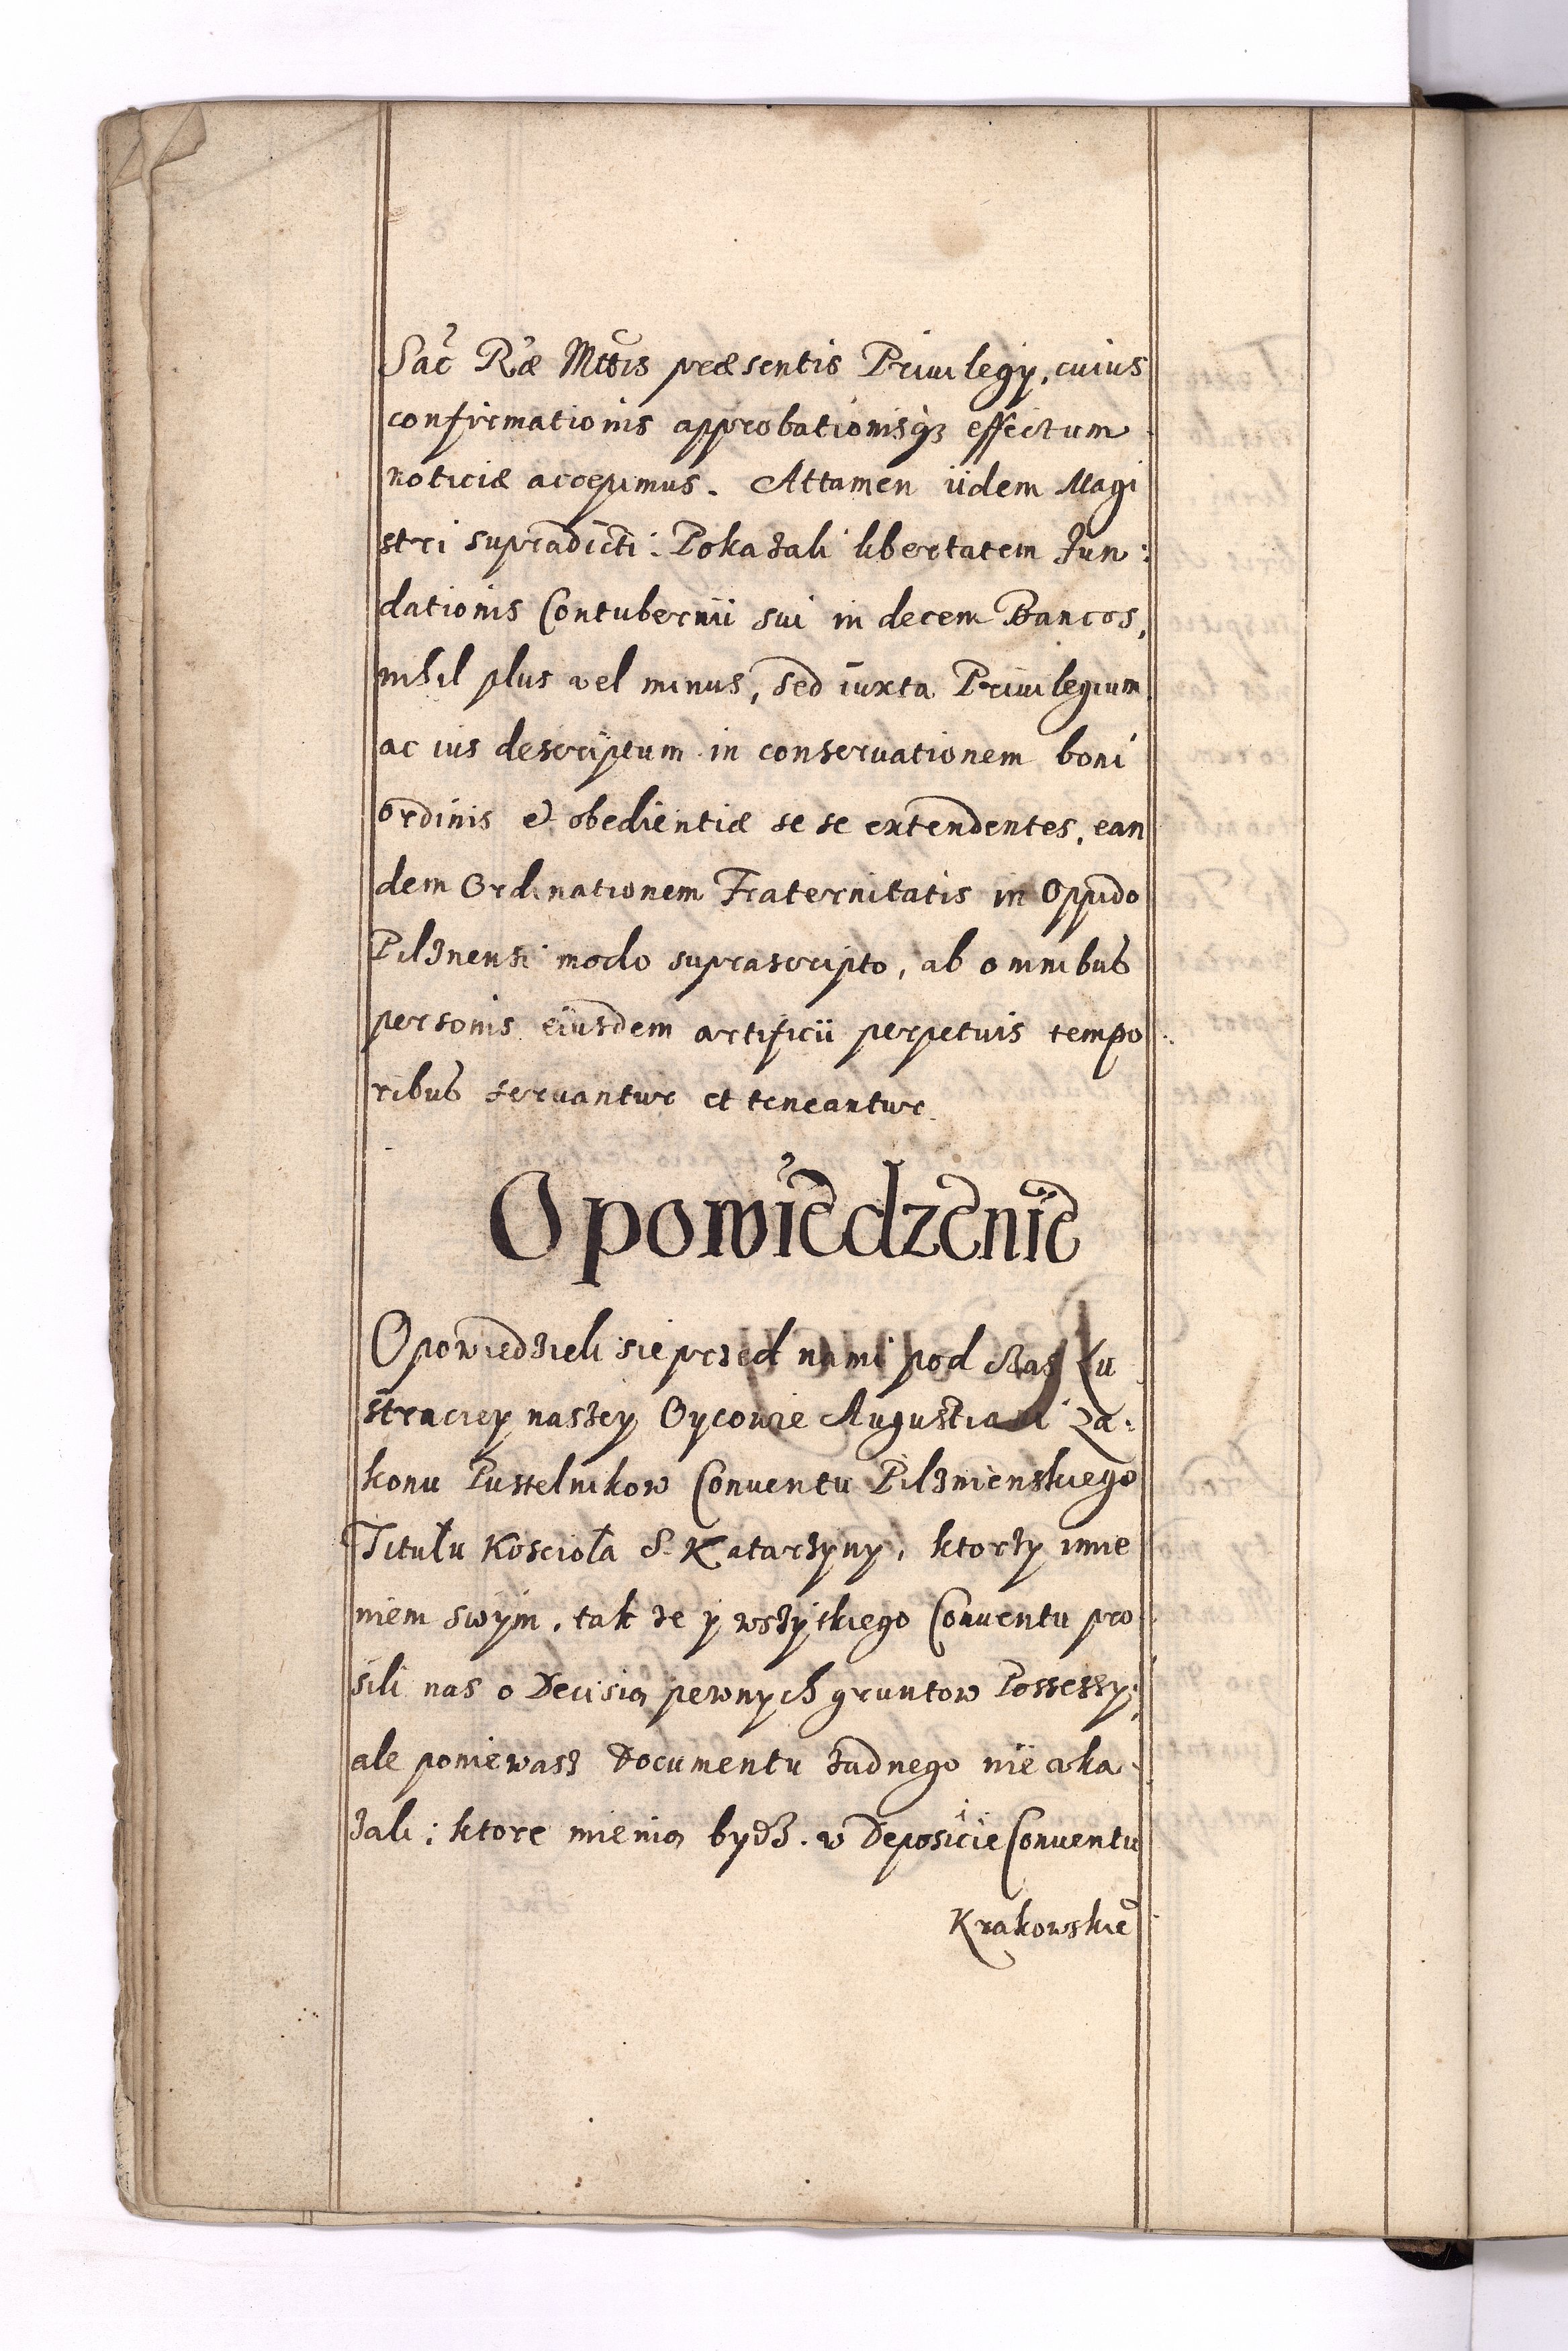 Sac Ræ Mttis præsentis Privilegy, cuius
confirmationis approbationisq3 effectum
noticiæ accepimus. Attamen iidem Magi
stri supradicti: Pokazali libertatem Fun:
dationis Contubernii sui in decem Bancos,
nihil plus vel minus, sed iuxta Privilegium
ac ius descriptum in conservationem boni
ordinis et obedientiæ se se extendentes, ean
dem Ordinationem Fraternitatis in Oppido
Pilznensi modo suprascripto, ab omnibus
personis eiusdem artificii perpetuis tempo
ribus servantur et teneantur.
Opowiedzenie
Opowiedzieli sie przed nami pod czas Lu
straciey naszey Oycowie Augustiani Za:
konu Pustelnikow Conventu Pilznienskiego
Titułu Koscioła S. Katarzyny, ktorzy imie
niem swym, tak ze y wszytkiego Conventu pro
sili nas o Decisią pewnych gruntow Possessy,
ale poniewasz Documentu zadnego nie oka
zali; ktore mienią bydz w Deposicie Conventu
Krakowskie